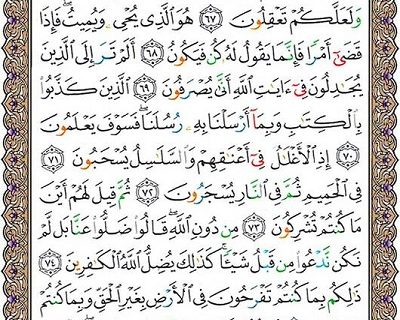 وَلَعَلَّكُمْ تَعْقِلُونَ ٦٧ هُوَ ٱلَّذِى يُحْىِۦ وَيُمِيتُ ۖ فَإِذَا
قَضَىٰٓ أَمْرًا فَإِنَّمَا يَقُولُ لَهُۥ كُن فَيَكُونُ ٦٨ أَلَمْ تَرَ إِلَى ٱلَّذِينَ
يُجَٰدِلُونَ فِىٓ ءَايَٰتِ ٱللَّهِ أَنَّىٰ يُصْرَفُونَ ٦٩ ٱلَّذِينَ كَذَّبُوا۟
بِٱلْكِتَٰبِ وَبِمَآ أَرْسَلْنَا بِهِۦ رُسُلَنَا ۖ فَسَوْفَ يَعْلَمُونَ
٧٠ إِذِ ٱلْأَغْلَٰلُ فِىٓ أَعْنَٰقِهِمْ وَٱلسَّلَٰسِلُ يُسْحَبُونَ ٧١
فِى ٱلْحَمِيمِ ثُمَّ فِى ٱلنَّارِ يُسْجَرُونَ ٧٢ ثُمَّ قِيلَ لَهُمْ أَيْنَ
مَا كُنتُمْ تُشْرِكُونَ ٧٣ مِن دُونِ ٱللَّهِ ۖ قَالُوا۟ ضَلُّوا۟ عَنَّا بَل لَّمْ
نَكُن نَّدْعُوا۟ مِن قَبْلُ شَيْـًٔا ۚ كَذَٰلِكَ يُضِلُّ ٱللَّهُ ٱلْكَٰفِرِينَ ٧٤
ذَٰلِكُم بِمَا كُنتُمْ تَفْرَحُونَ فِى ٱلْأَرْضِ بِغَيْرِ ٱلْحَقِّ وَبِمَا كُنتُمْ